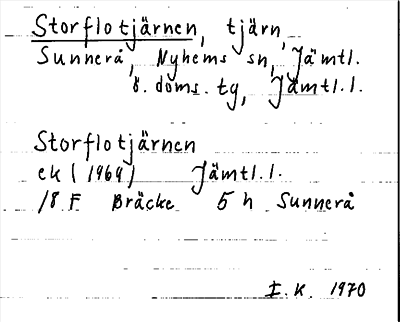 Storflotjärnen, tjärn,
Sunnerå, Nyhems sn, Jämtl.
ö. doms. tg, Jämtl.l.
Storflotjärnen
ek (1969) Jämtl.l.
18 F Bräcke 5 h Sunnerå
I.K. 1970